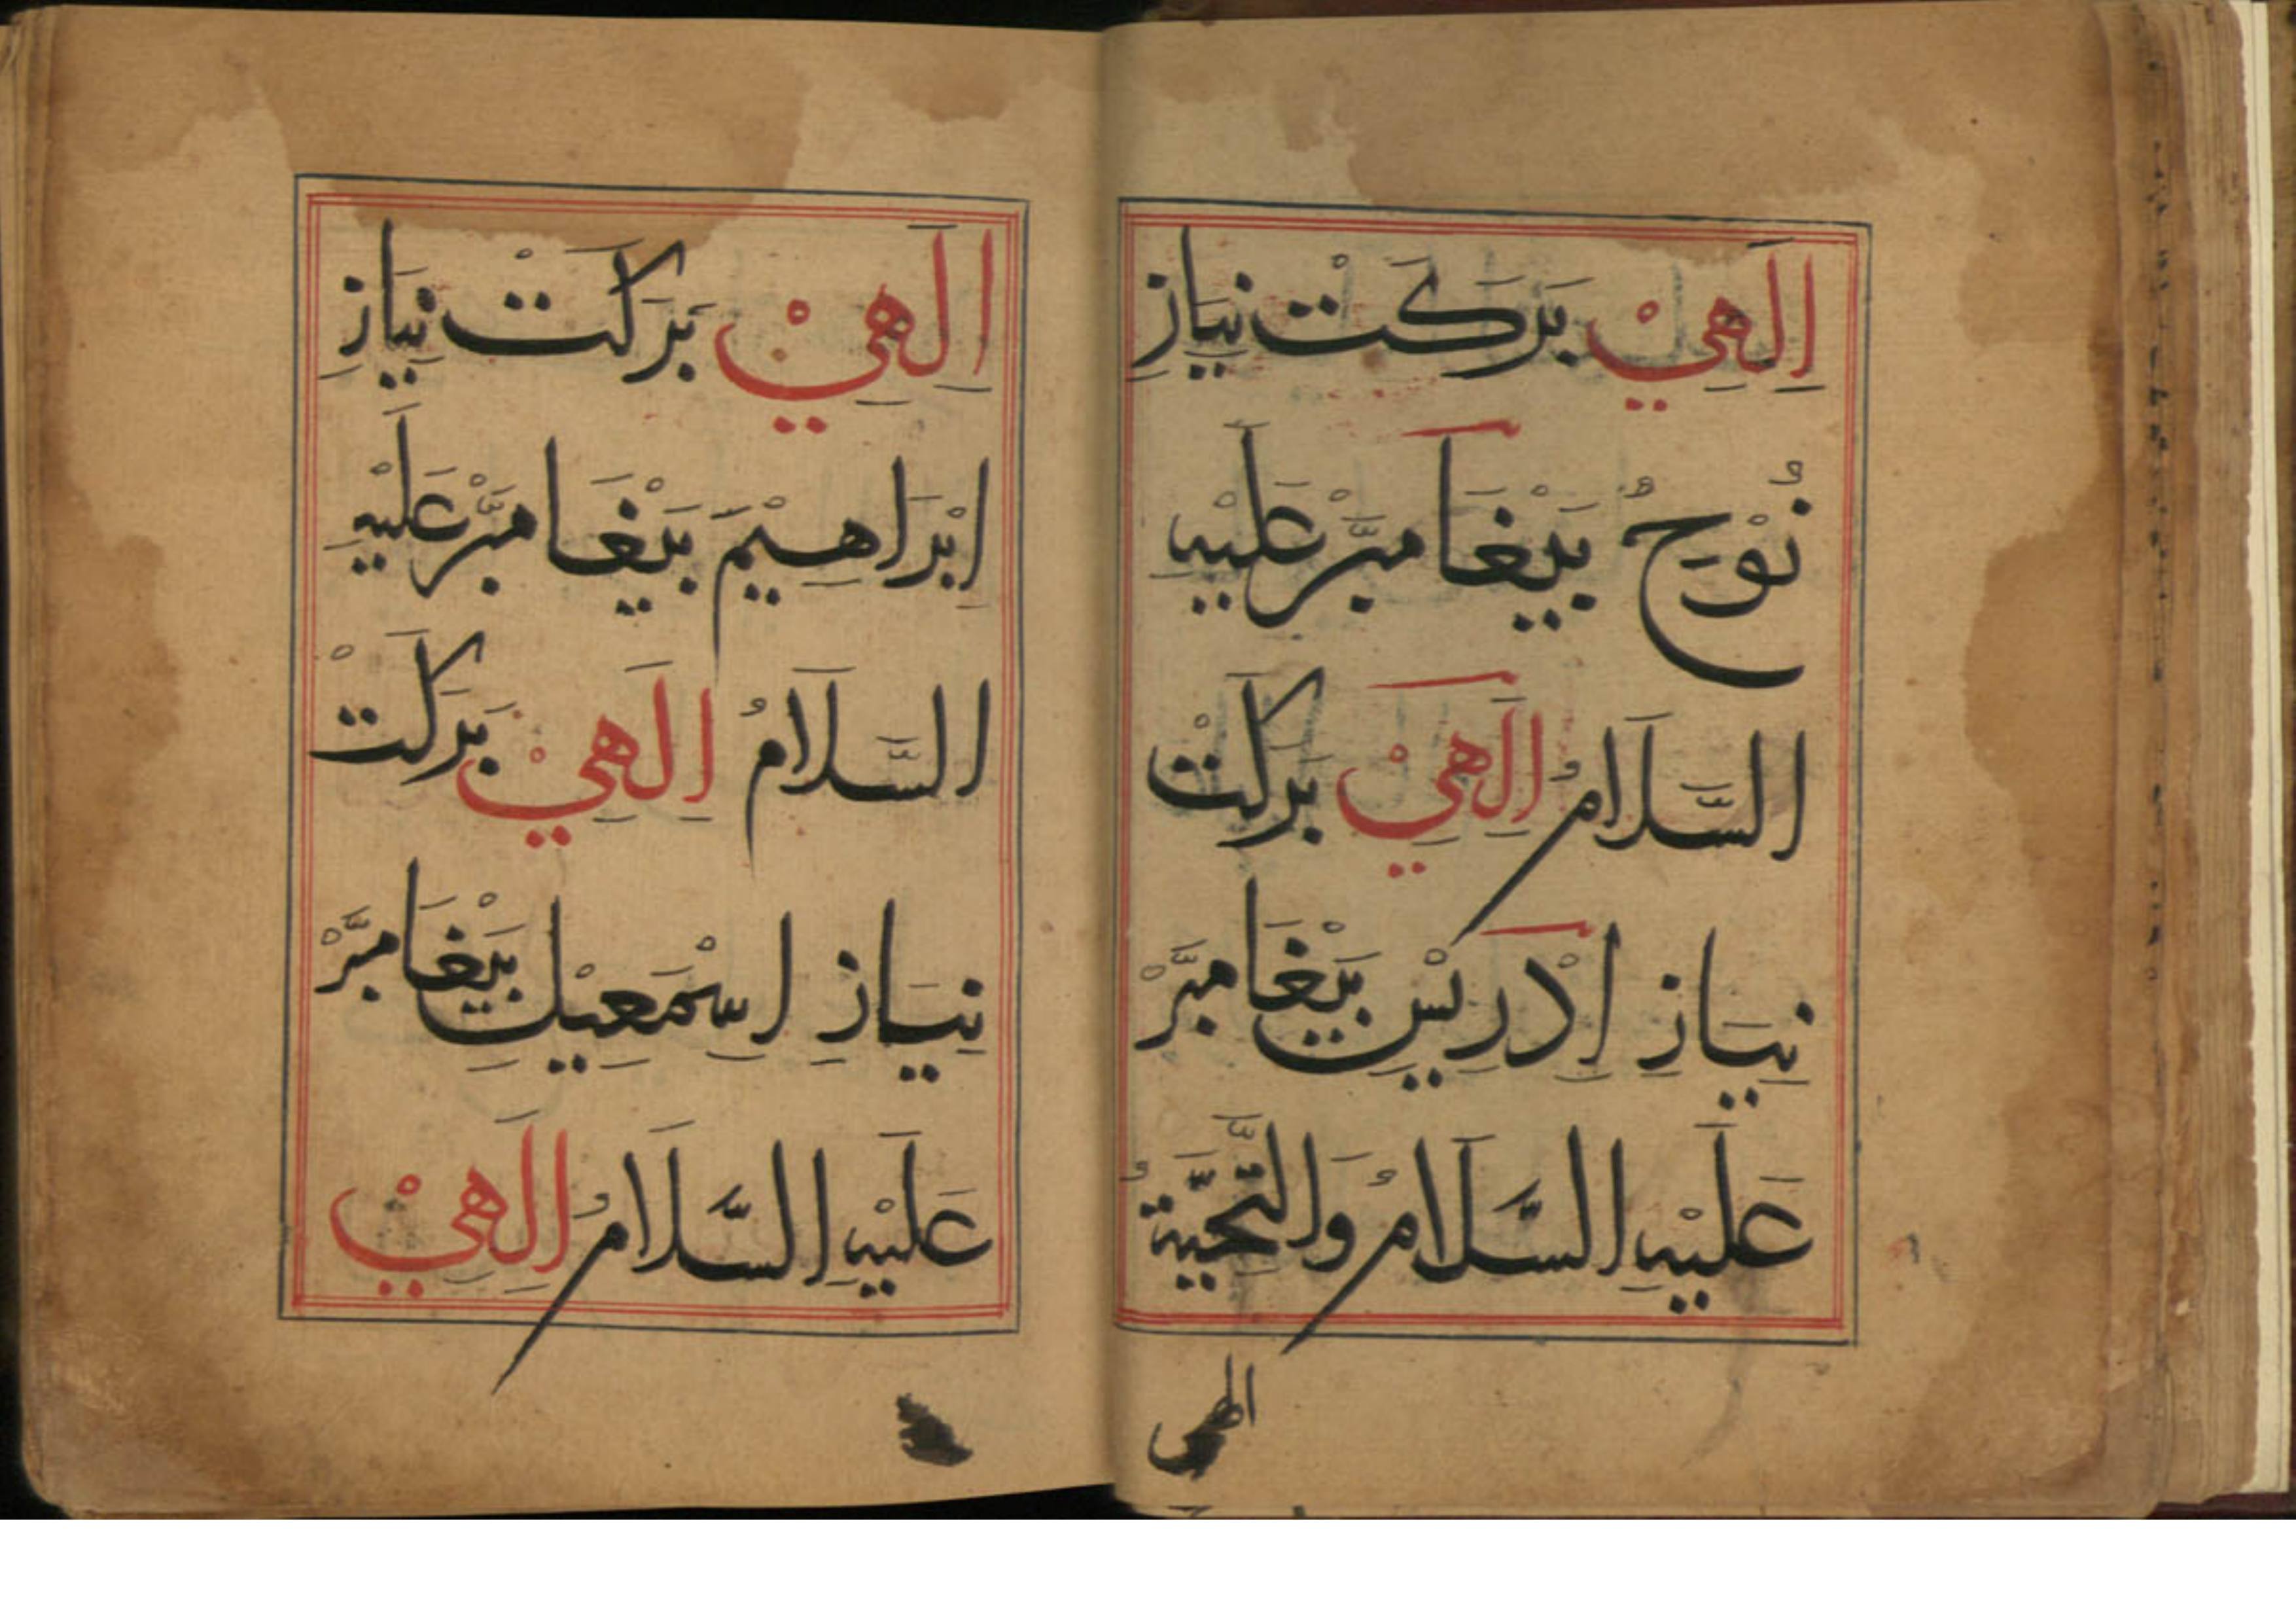 اِلَهِيْ بَرَكَتْ نِيَازِ
نُوْحُ بَيْغَامبَّرْ عَلَيْهِ
السَّلَامُ اِلَهِيْ بَرَكَتْ
نِيَازِ اِدْرِيسْ بَيْغَامبَّرْ
عَلَيْهِ السَّلَامُ وَالتَّحِيَّةُ
الهى
اِلَهِيْ بَرَكَتْ نِيَازِ
اِبْرَاهِيْمَ بَيْغَامبَّرْ عَلَيْهِ
السَّلَامُ اِلَهِيْ بَرَكَتْ
نِيَازِ اِسْمَعِيْلِ بَيْغَامبَّرْ
عَلَيْهِ السَّلَامُ اِلَهِيْ